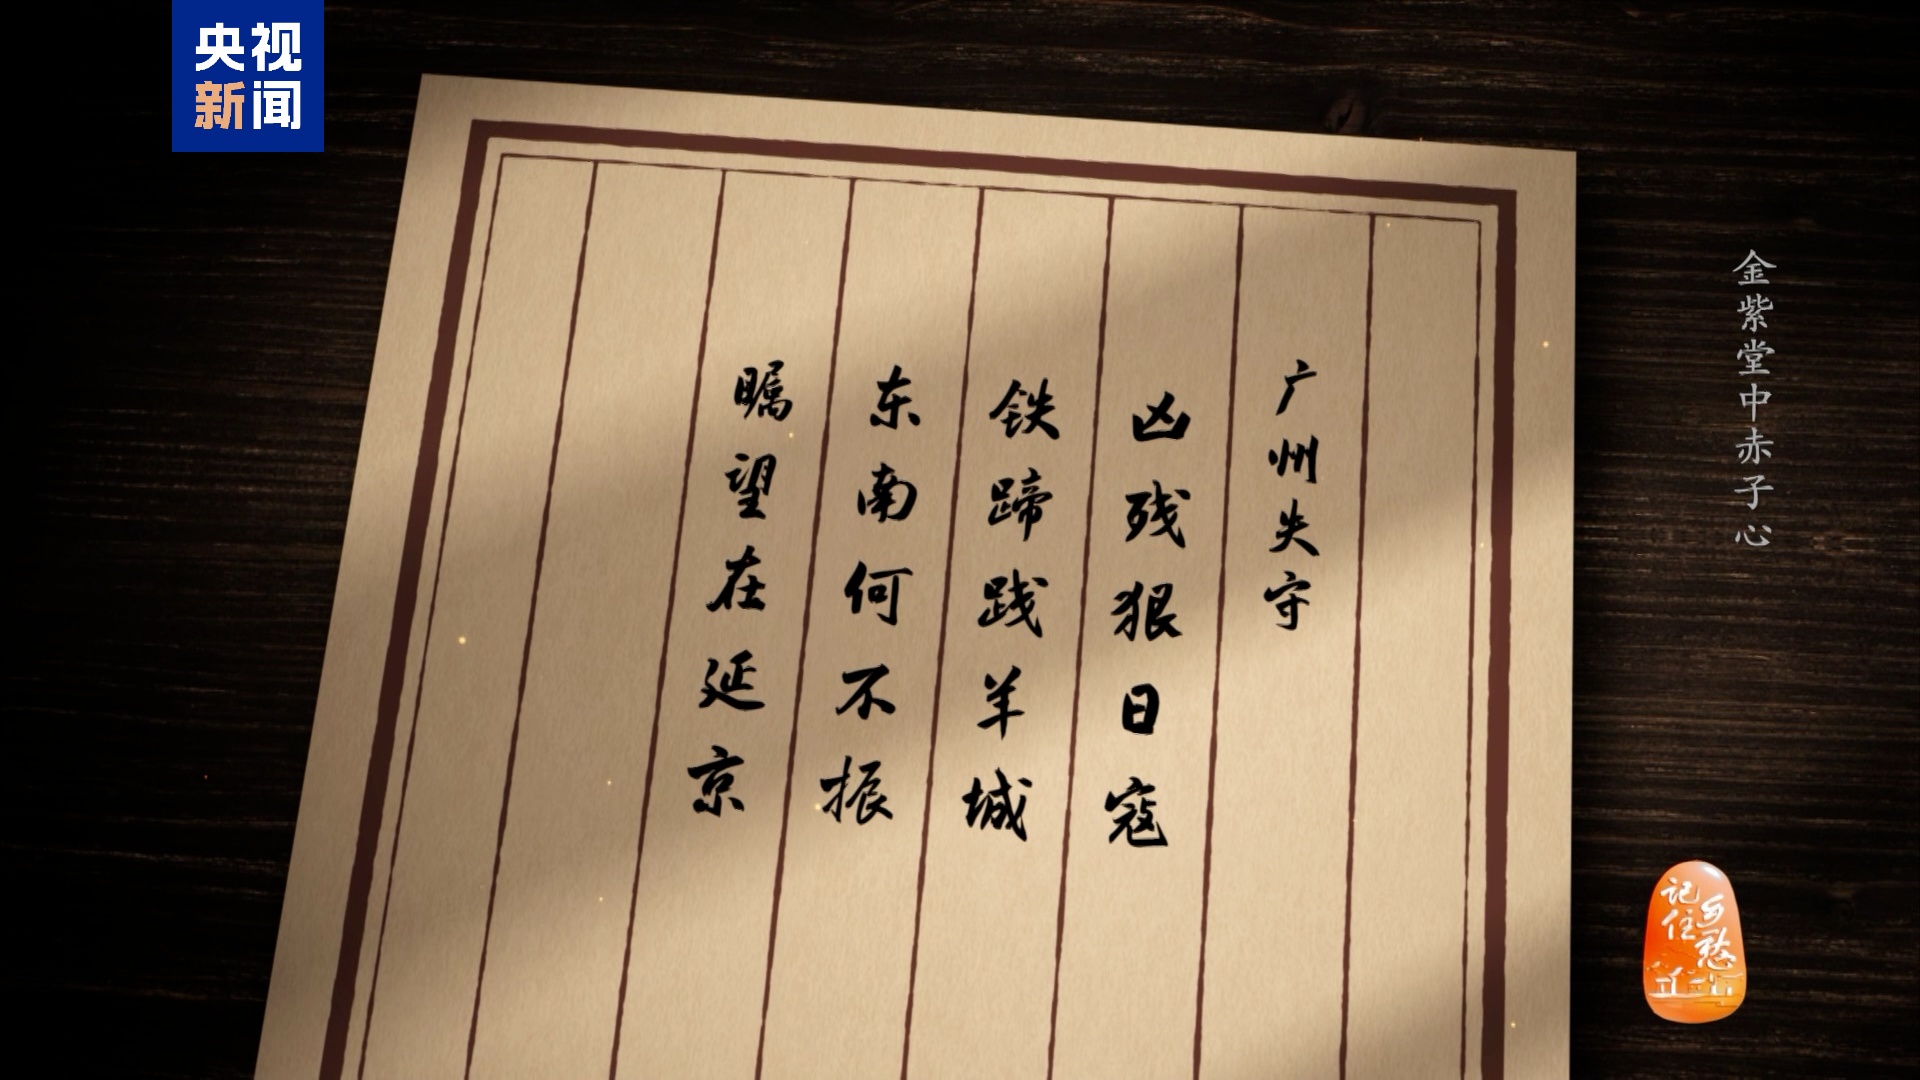 央视
新闻
广州失守
凶残狠日寇
铁蹄践羊城
东南何不振
瞩望在延京
金紫堂中赤子心
记住
乡愁